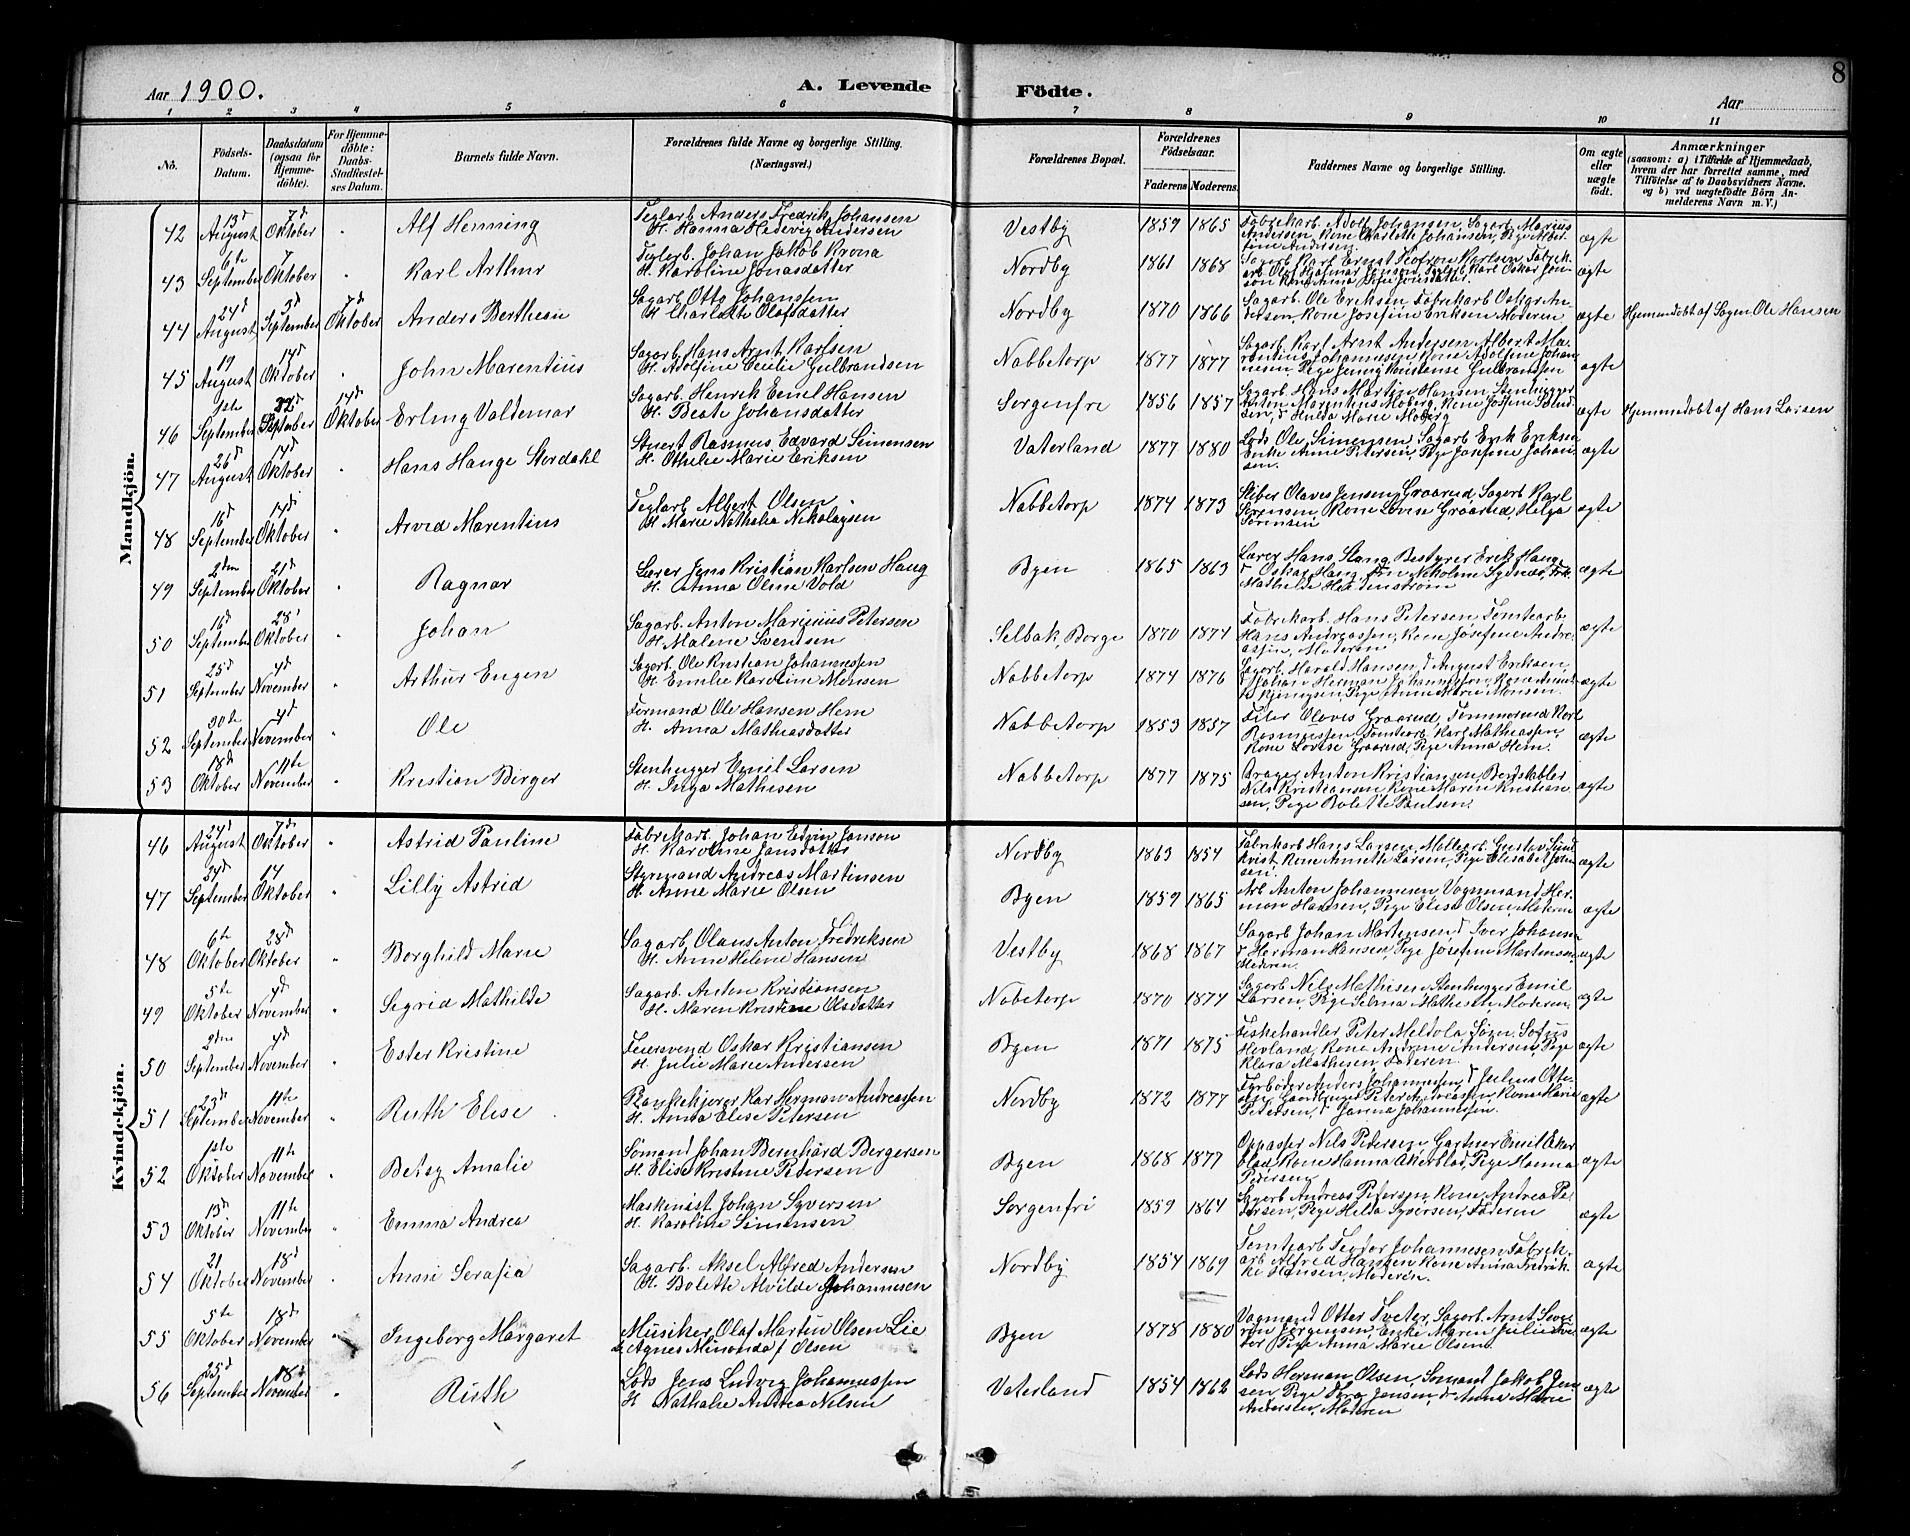 8
Aar 1900. A. Levende Födte. Aar
1 2 3 4 5 6 7 8 9 10 11
No. Födsels-Datum. Daabsdatum (ogsaa för Hjemme-döbte). For Hjemme-döbte: Daabs-Stadfæstel-ses Datum. Barnets fulde Navn. Forældrenes fulde Navne og borgerlige Stilling. (Næringsvei.) Forældrenes Bopæl. Forældrenes Födselsaar. Faderens Moderens. Faddernes Navne og borgerlige Stilling. Om ægte eller uægte födt. Anmærkninger (saasom: a) i Tilfælde af Hjemmedaab, hvem der har forrettet samme, med Tilföielse af to Daabsvidners Navne, og b) ved uægtefödte Börn An-melderens Navn m. V.)
Mandkjön.
42 13d August 7d Oktober " Alf Henning Teglarb. Anders Fredrik Johansen H. Hanna Hedevig Andersen Vestby 1859 1865 Fabrikarb. Adolf Johansen, Sagarb. Marius Andersen, Kone Charlotte Johansen, Pige Andersen. ægte
43 6te September 7 Oktober " Karl Arthur Teglarb. Johan Jakob Krona H. Karoline Jonasdatter Nordby 1861 1868 Sagarb. Karl Ernst Karlsen, Fabrikarb. Olof Hjalmar Jonson, Karl Oskar Jonson Kone Anna, Pige ægte
44 24d August 3d September 7d Oktober Anders Bertheau Sagarb Otto Johanssen H Charlotte Olafsdatter Nordby 1870 1866 Sagarb. Ole Eriksen, Fabrikarb Oskar Andersen, Kone Josefine Eriksen Moderen ægte Hjemmedöbt af Sogn. Ole Hansen
45 19 August 14d Oktober " John Marentius Sagarb. Hans Arnt Karlsen H. Adolfine Cecilie Gulbrandsen Nabbetorp 1877 1877 Sagarb. Karl Arnt Andersen Albert Marentius Johannesen Kone Adolfine Johannesen. Pige Jenny Konstanse Gulbranssen ægte
46 1ste September September 14d Oktober Erling Valdemar Sagarb. Henrik Emil Hansen H. Beate Johansdatter Sorgenfre 1856 1857 Sagarb. Hans Martin Hansen, Stenhugger Anton Marentius Moberg, Kone Josefine Hulda Marie Moberg ægte Hjemmedöbt af Hans Larsen
47 26d August 14d Oktober " Hans Hauge Stordahl Stuert Rasmus Edvard Simensen H. Othelie Marie Eriksen Vaterland 1877 1880 Lods Ole Simensen, Sagarb Erik Eriksen Enke Anne Petersen, Pige Josefine Johansen. ægte
48 16d September 14d Oktober " Arved Marentius Teglarb Albert Olsen. H. Marie Nathalia Nikolaysen Nabbetorp 1874 1873 Sliber Olaves Jensen Graarud, Sagarb Karl Sörensen, Kone Lovise Graarud, Helga Sörensen ægte
49 2den September 21d Oktober " Ragnar Lærer Jens Kristian Karlsen Haug H. Anna Oline Vold Byen 1865 1863 Lærer Hans Stang, Bestyrer Erik Haug, Oskar Haug, Mathilde ægte
50 16d September 28d Oktober " Johan Sagarb. Anton Marinius Petersen H. Malene Svendsen Selbak, Borge 1870 1874 Fabrikarb. Hans Petersen, Tomtearb Hans Andreassen, Kone Josefine Andreassen, Moderen ægte
51 25d September 4d November " Arthur Eugen Sagarb. Ole Kristian Johannessen H. Emilie Karoline Monsen Nabbetorp 1874 1876 Sagarb. Harald Hansen, d August Eriksen, Johan Herman Johannessen, Kone Pige Anne Marie Monsen. ægte
52 30te September 4d November " Ole Formand Ole Hansen Hem H. Anna Mathiasdatter Nabbetorp 1853 1857 Filer Olaves Graarud, Tömmermand Karl Rasmussen, Tomtearb. Karl Mathiassen, Kone Lovise Graarud, Pige Anna Hem. ægte
53 18d Oktober 11te November " Kristian Birger Stenhugger Emil Larsen H. Inga Mathisen Nabbetorp 1877 1875 Drager Anton Kristiansen, Bordstabler Nils Kristiansen, Kone Maren Kristiansen, Pige Bolette Paulsen. ægte
Kvindekjön.
46 24d August 7d Oktober " Astrid Pauline Fabrikarb. Johan Edvin Janson H. Karoline Jansdatter Nordby 1863 1854 Fabrikarb Hans Larsen, Möllearb. Gustav Kone Annette Larsen, Pige Elisabet ægte
47 September 14 Oktober " Lilly Astrid Styrmand Andreas Martinsen H. Anne Marie Olsen Byen 1859 1865 Arb. Anton Johannesen Vognmand Herman Hansen, Pige Elise Olsen, Moderen ægte
48 6te Oktober 28d Oktober " Borghild Marie Sagarb, Olaus Anton Fredriksen H. Anne Helene Hansen Vestby 1868 1867 Sagarb Johan Martinsen, d Iver Johansen Herman Hansen, Pige Josefine Martinsen, Moderen. ægte
49 5te Oktober 4d November " Sigrid Mathilde Sagarb. Anton Kristiansen H. Maren Kristine Olsdatter Nabetorp 1870 1874 Sagarb Nils Mathisen, Stenhugger Emil Larsen, Pige Selma Mathisen, Moderen. ægte
50 2den September 4d November " Ester Kristine Feiersvend Oskar Kristiansen H. Julie Marie Andersen Byen 1871 1875 Fiskehandler Peter Meldola Sofus Hovland, Kone Andersen, Pige Klara Mathisen, Faderen. ægte
51 23d September 11te November " Ruth Elise Plankekjörer Karl Herman Andreassen H. Anna Elise Petersen Nordby 1872 1877 Fyrböder Anders Johannesen, Julius Peter Andreassen, Kone Marie Petersen, Janna Johannessen. ægte
52 1ste Oktober 11te November " Betsy Amalie Sömand Johan Bernhard Bergersen H. Elise Kristine Pedersen Byen 1868 1877 Oppasser Nils Pedersen, Gartner Emil Akerblad, Kone Hanna Akerblad, Pige Hanna Pedersen ægte
53 13d Oktober 11te November " Emma Andrea Maskinist Johan Syversen H. Karoline Simensen Sorgenfri 1859 1864 Sagarb Andreas Petersen, Kone Andrea Petersen, Pige Helda Syversen, Faderen ægte
54 21 Oktober 18d November " Anni Serafia Sagarb. Aksel Alfred Andersen H. Bolette Alvilde Johannesen Nordby 1854 1869 Tomtearb Teodor Johannesen, Fabrikarb Alfred Hansen Kone Anna Fredrikke Hansen, Moderen. ægte
55 5te Oktober 18d November " Ingeborg Margaret Musiker Olaf Martin Olsen Lie Agnes Minonda Olsen Byen 1878 1880 Vognmand Otter Tveter, Sagarb. Arnt Severin Jörgensen, Enke Maren Julie Tveter, Pige Anna Marie Olsen. ægte
56 25d September 18d November " Ruth Lods Jens Ludvig Johannessen H Nathalie Andrea Nilsen Vaterland 1854 1862 Lods Herman Olsen, Sömand Jakob Jensen, Pige Thra Jensen, d Anne Marie Andersen, Moderen ægte